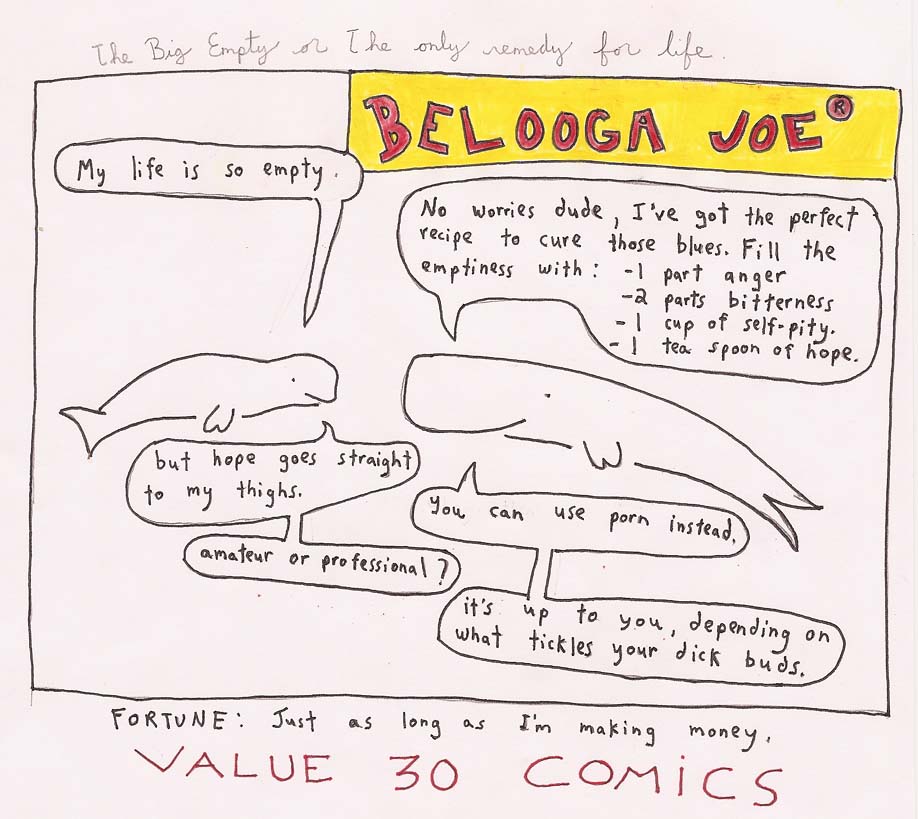 The Big Empty or The only remedy for life.
BELOOGA JOE®
My life is so empty.
No worries dude, I've got the perfect
recipe to cure those blues. Fill the
emptiness with: -1 part anger
-2 parts bitterness
-1 cup of self-pity.
-1 tea spoon of hope.
but hope goes straight
to my thighs.
You can use porn instead.
amateur or professional?
it's up to you, depending on
what tickles your dick buds.
FORTUNE: Just as long as I'm making money.
VALUE 30 COMiCS